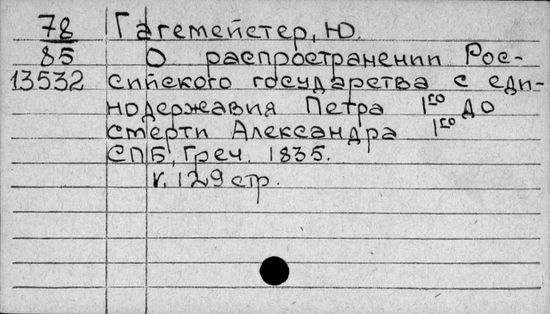 78 Гагемейстер, Ю.
85 О распространении Рос-
13532 сийского государства с еди-
нодержавия Петра Iго до
смерти Александра Iго
СПБ, Греч. 1835.
129 стр.